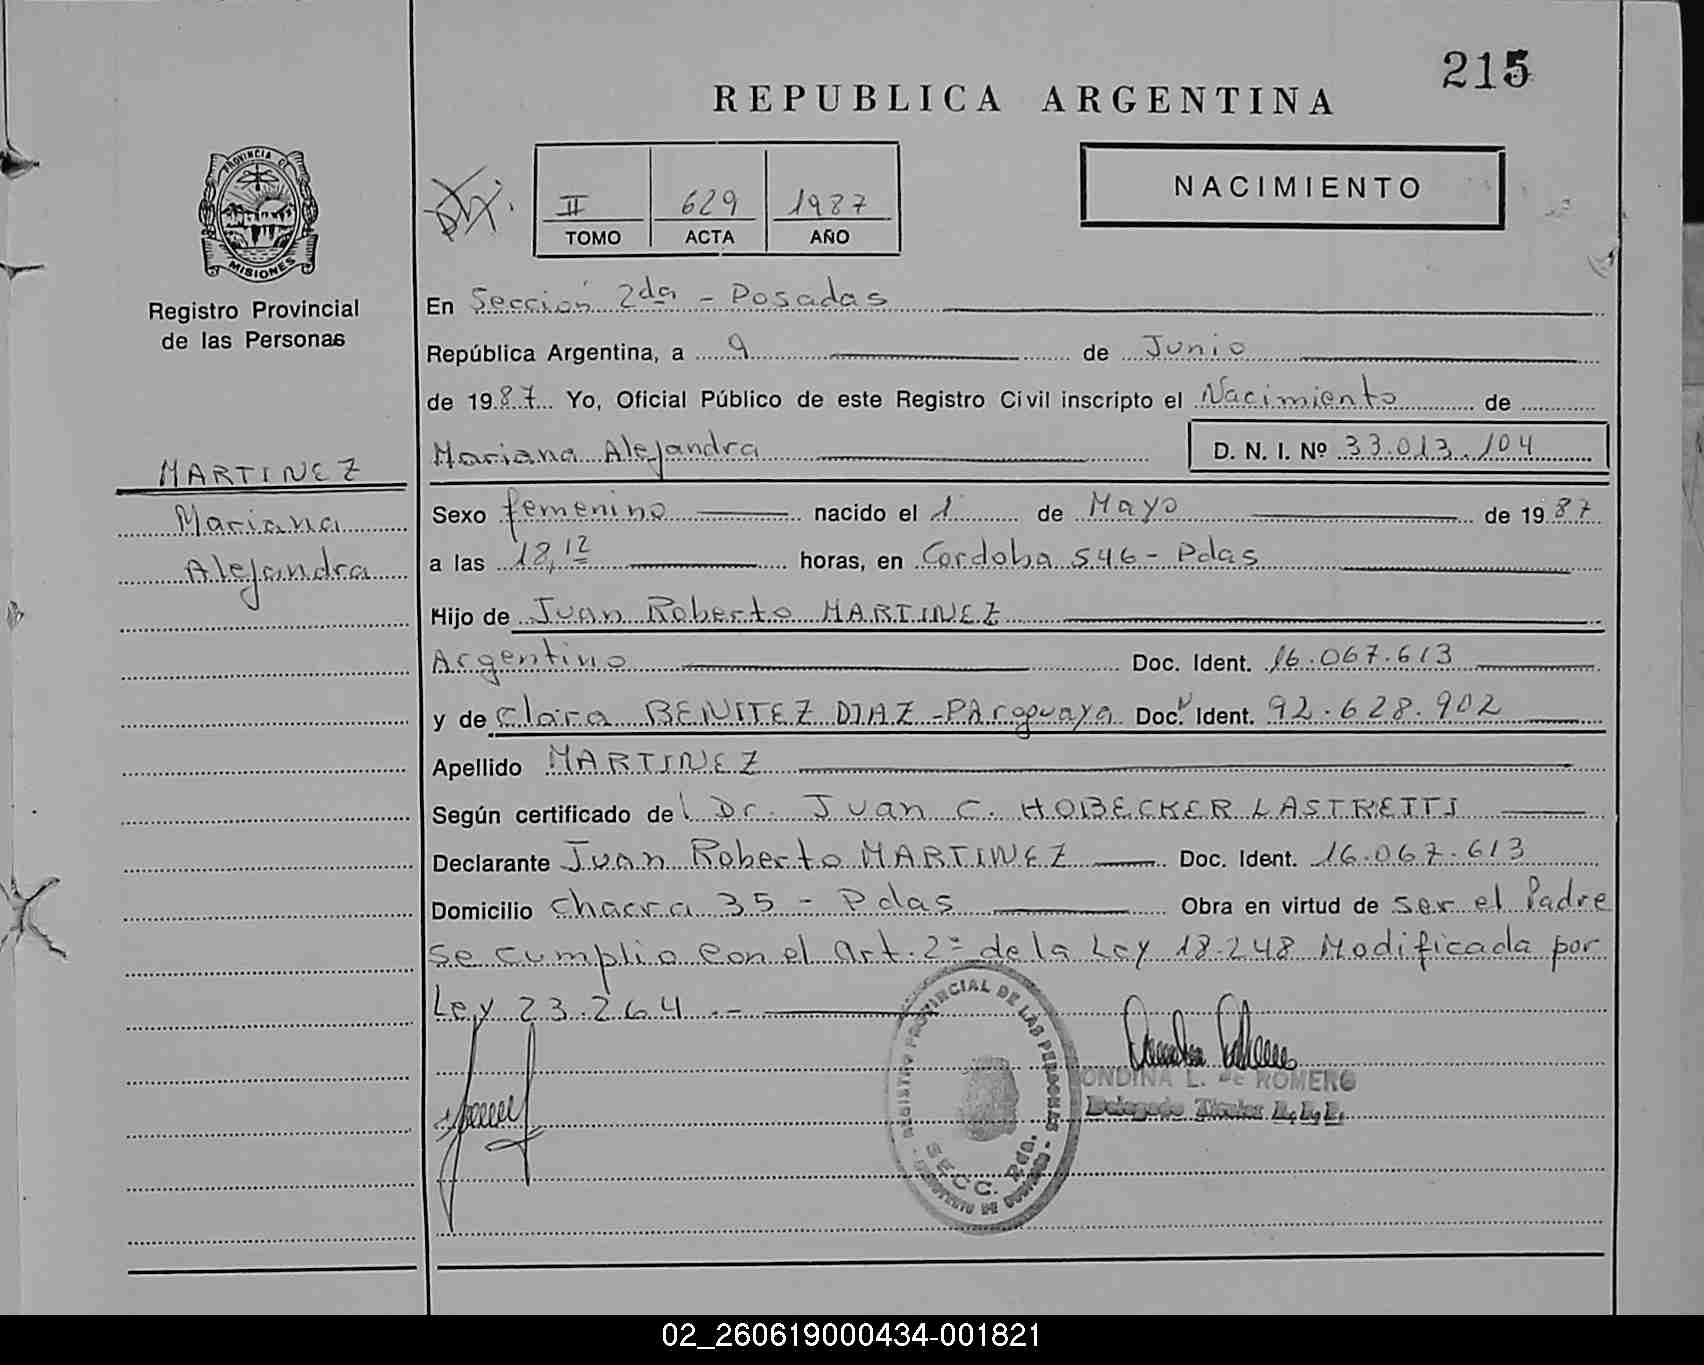 215
REPUBLICA ARGENTINA
PROVINCIA DE
MISIONES
Registro Provincial
de las Personas
II 629 1987
TOMO ACTA AÑO
NACIMIENTO
En Sección 2da - Posadas
República Argentina, a 9 de Junio
de 1987 Yo, Oficial Público de este Registro Civil inscripto el Nacimiento de
Mariana Alejandra D. N. I. Nº 33.013.104
MARTINEZ
Mariana
Alejandra
Sexo femenino nacido el 1 de Mayo de 1987
a las 18,12 horas, en Cordoba 546 - Pdas
Hijo de Juan Roberto MARTINEZ
Argentino Doc. Ident. 16.067.613
y de Clara BENITEZ DIAZ - PAraguaya Doc. Ident. 92.628.902
Apellido MARTINEZ
Según certificado del Dr. Juan C. HOBECKER LASTRETTI
Declarante Juan Roberto MARTINEZ Doc. Ident. 16.067.613
Domicilio chacra 35 - Pdas Obra en virtud de ser el Padre
se cumplio con el Art. 2º de la Ley 18.248 Modificada por
Ley 23.264 .-
REGISTRO PROVINCIAL DE LAS PERSONAS
SECC. 2da.
ONDINA L. de ROMERO
Delegado Titular
02_260619000434-001821